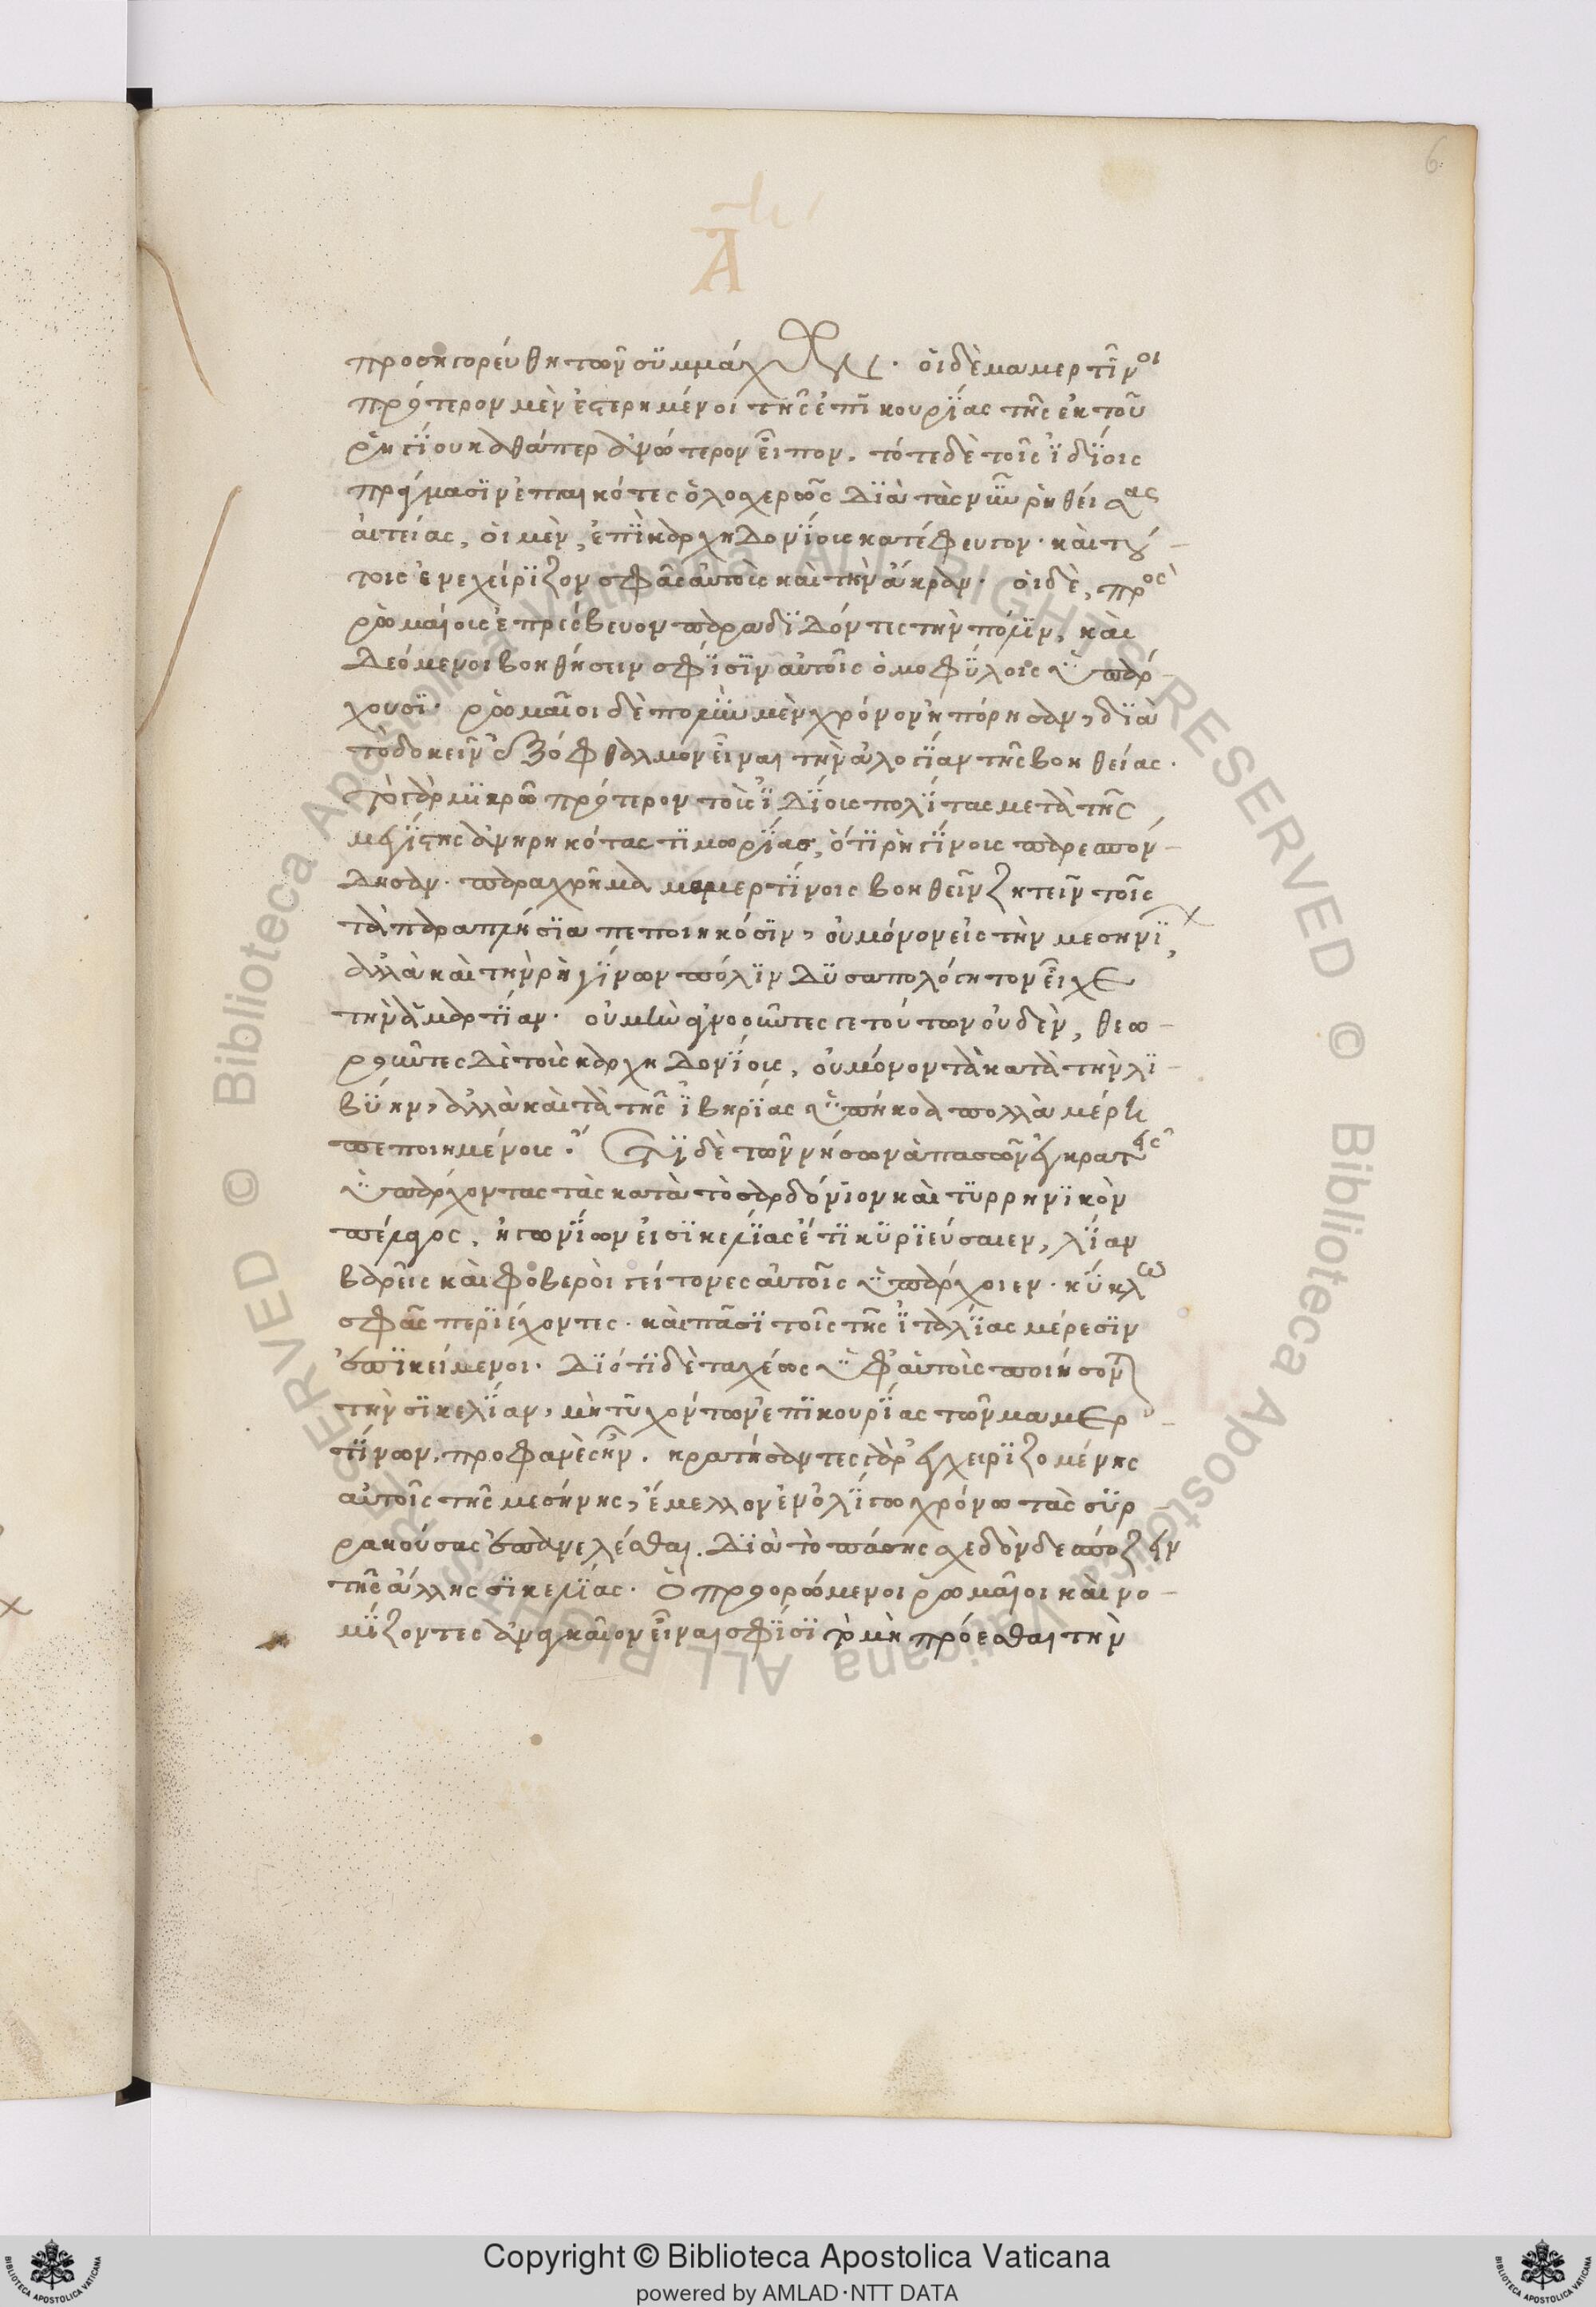 6
Α
προσηγορεύθη των συμμάχων. ὁι δὲ μαμερτῖνοι
πρότερον μὲν ἐστερημένοι τῆς ἐπικουρΐας τῆς ἐκ τοῦ
ῥηγΐου καθάπερ ἀνώτερον εἶπον. τότε δὲ τοῖς ϊδΐοις
πράγμασϊν ἐπταικότες ὁλοσχερῶς δϊὰ τὰς νῦν ῥηθείσας
αἰτείας, ὁι μὲν, ἐπῒ καρχηδονΐοις κατέφευγον. κὰι τού-
τοις ἐνεχείρϊζον σφᾶς αὐτοὺς κὰι τὴν ἄκραν. ὁι δὲ, πρὸς
ῥωμαίοις ἐπρέσβευον παραδϊδόντες τὴν πόλϊν, κὰι
δεόμενοι βοηθήσειν σφΐσϊν αὐτοῖς ὁμοφΰλοις ὑπάρ-
χουσϊ. ῥωμαῖοι δὲ πολὺν μὲν χρόνον ἠπόρησαν, δϊὰ
τὸ δοκεῖν ἐξόφθαλμον εἶναι τὴν ἀλογΐαν τῆς βοηθείας.
τὸ γὰρ μϊκρῶ πρότερον τοὺς ϊδΐους πολΐτας μετὰ τῆς
μεγΐστης ἀνηρηκότας τϊμωρΐας, ὅτϊ ῥηγΐνοις παρεσπόν-
δησαν. παραχρῆμα μαμερτΐνοις βοηθεῖν ζητεῖν τοῖς
τὰ παραπλήσϊα πεποιηκόσϊν, οὐ μόνον εἰς τὴν μεσηνϊ,
ἀλλὰ κὰι τὴν ῥηγΐνων πόλϊν δϋσαπολόγητον εἶχε
τὴν ἁμαρτΐαν. οὐ μὴν ἀγνοοῦντές γε τούτων οὐδὲν, θεω-
ροῦντες δὲ τοὺς καρχηδονΐους, οὐ μόνον τὰ κατὰ τὴν λϊ-
βΰην, ἀλλὰ κὰι τὰ τῆς ϊβηρΐας ὑπήκοα πολλὰ μέρη
πεποιημένους. ἔτϊ δὲ τῶν νήσων ἁπασῶν ἐγκρατεῖς
ὑπάρχοντας τὰς κατὰ τὸ σαρδόνϊον κὰι τϋρρηνϊκὸν
πέλαγος, ἠγωνΐων εἰ σϊκελΐας ἔτϊ κϋρϊεύσαιεν, λΐαν
βαρεῖς κὰι φοβερὸι γείτονες αὐτοῖς ὑπάρχοιεν. κΰκλω
σφᾶς περϊέχοντες. κὰι πᾶσϊ τοῖς τῆς ϊταλΐας μέρεσϊν
ἐπϊκείμενοι. δϊότϊ δὲ ταχέως ὑφ' αὑτοὺς ποιήσον)
τὴν σϊκελΐαν, μὴ τϋχόντων ἐπϊκουρΐας τῶν μαμερ-
τΐνων, προφανὲς ἦν. κρατήσαντες γὰρ ἐγχειρϊζομένης
αὐτοῖς τῆς μεσήνης, ἔμελλον ἐν ὀλΐγω χρόνω τὰς σϋρ-
ρακούσας ἐπανελέσθαι. δϊὰ τὸ πάσης σχεδὸν δεσπόζειν
τῆς ἄλλης σϊκελΐας. ὃ προορώμενοι ῥωμαῖοι κὰι νο-
μΐζοντες ἀναγκαῖον εἶναι σφΐσϊ τὸ μὴ πρόεσθαι τὴν
Copyright © Biblioteca Apostolica Vaticana
powered by AMLAD·NTT DATA